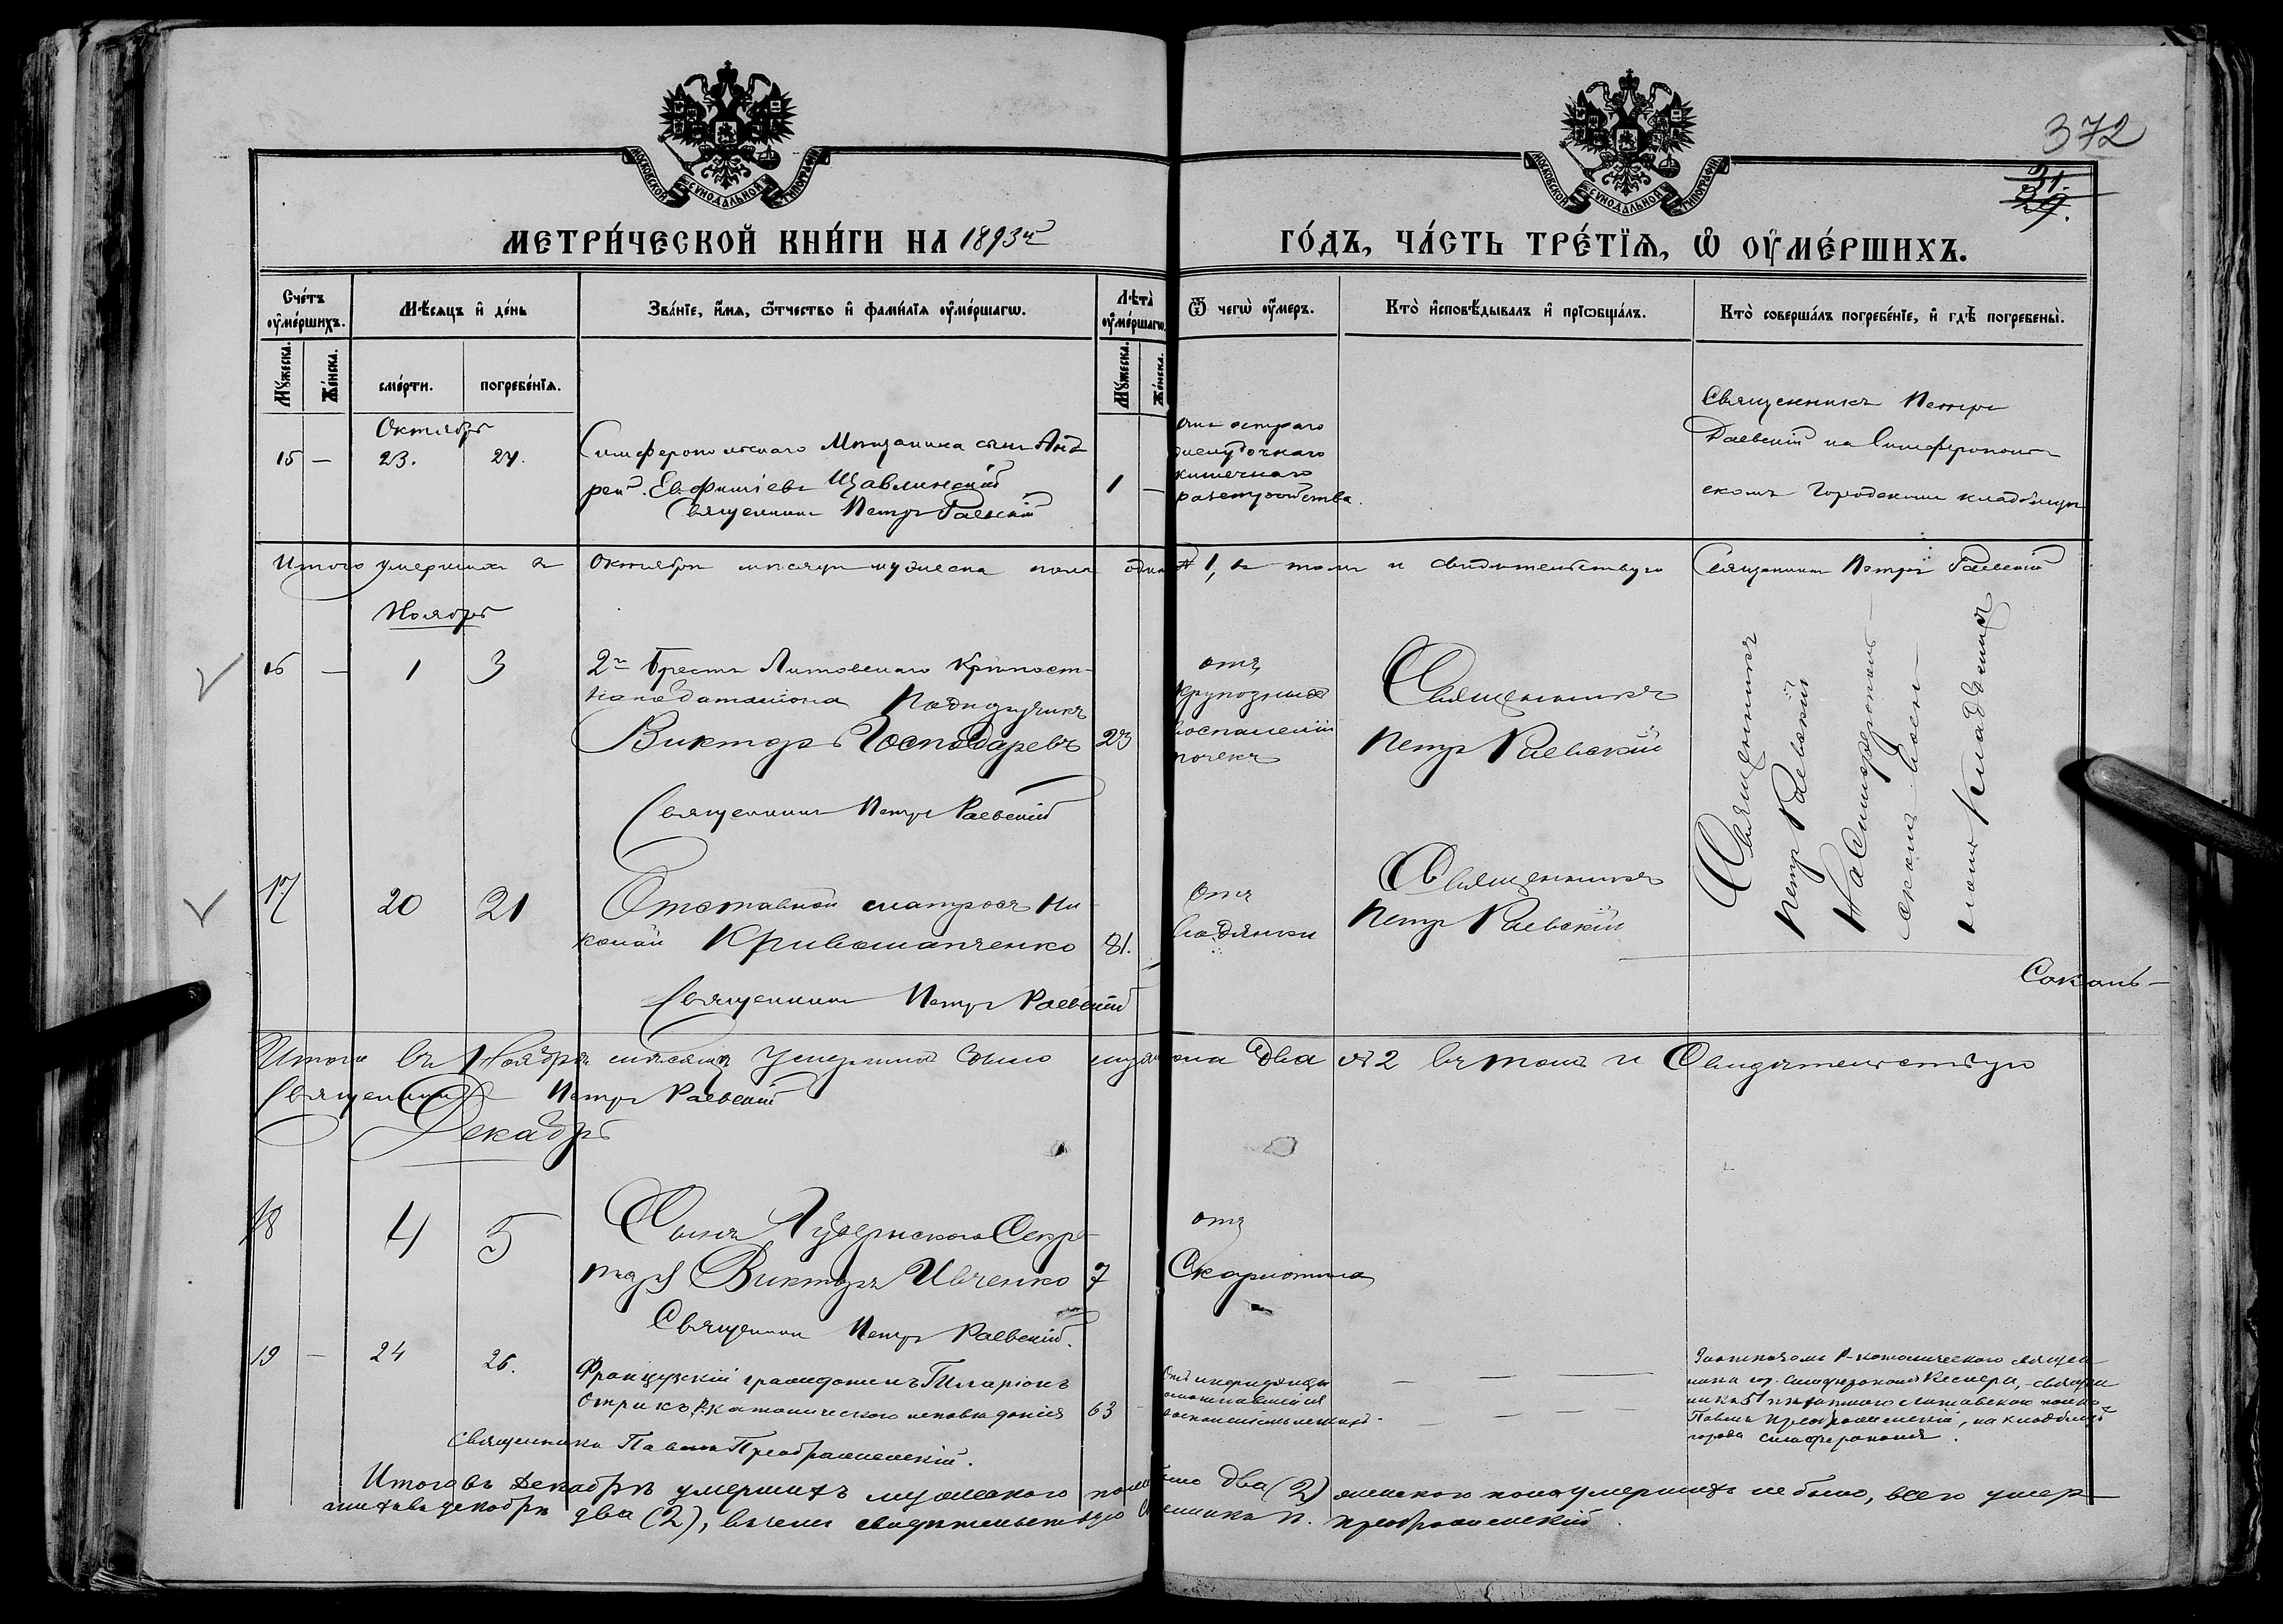 МОСКОВСКОЙ СѴНОДАЛЬНОЙ ТИПОГРАФІИ
МОСКОВСКОЙ СѴНОДАЛЬНОЙ ТИПОГРАФІИ
372
31.
29.
МЕТРИ́ЧЕСКОЙ КНИ́ГИ НА 1893й
ГО́ДЪ, ЧА́СТЬ ТРЕ́ТЇѦ, Ѡ ОУ҆МЕ́РШИХЪ.
Сче́тъ оу҆ме́ршихъ.
Мѣ́сѧцъ и҆ де́нь
Зва́нїе, и҆́мѧ, ѻ҆́тчество и҆ фами́лїѧ оу҆ме́ршагѡ.
Лѣта̀ оу҆ме́ршагѡ.
Ѿ чегѡ̀ оу҆́меръ.
Кто̀ и҆сповѣ́дывалъ и҆ прїѡбща́лъ.
Кто̀ соверша́лъ погребе́нїе, и҆ гдѣ̀ погребены̀.
Мꙋ́жеска.
Же́нска.
сме́рти.
погребе́нїѧ.
Мꙋ́жеска.
Же́нска.
Октябрь
15 — 23. 24.
Симферопольскаго Мѣщанина сынъ Анд
рей. Евфиміевъ Щавлинскій
Священникъ Петръ Раевскій
1 —
остраго
желудочнаго
кишечнаго
разстройства.
Священникъ Петръ
Раевскій на Симферополь
скомъ Городскомъ кладбищѣ
Итого умершихъ въ Октябрѣ мѣсяцѣ мужеска пола одинъ № 1, въ томъ и свидѣтельствую Священникъ Петръ Раевскій
Ноябрь
16 — 1 3
2й Брестъ Литовскаго Крѣпост-
наго баталіона Подпоручикъ
Викторъ Господаревъ 23
Священникъ Петръ Раевскій
отъ
крупозныхъ
воспаленій
почекъ
Священникъ
Петръ Раевскій
Священникъ
Петръ Раевскій
На Симферополь
скомъ воен-
номъ Кладбищѣ
17 20 21
Отставной матросъ Ни-
колай Кривошапченко 81.
Священникъ Петръ Раевскій
отъ
водянки
Священникъ
Петръ Раевскій
Соколь-
Итого въ Ноябрѣ мѣсяцѣ Умершихъ было муж пола два № 2 въ томъ и Свидѣтельствую
Священникъ Петръ Раевскій
Декабрь
18 4 5
Сынъ Губернскаго Секре-
таря Викторъ Ивченко 7
Священникъ Петръ Раевскій.
отъ
Скарлотина
19 — 24 26.
Французскій гражданинъ Иларіонъ
Отрикъ Р-католическаго исповѣданія 63 -
Священникъ Павелъ Преображенскій.
воспаленіемъ легкихъ.
Р-католическаго священ
ника гор. Симферополя Кеслера, - священ
никъ 51 пѣхотнаго Литовскаго полка
Павелъ Преображенскій, на кладбищѣ
города Симферополя.
Итого въ Декабрѣ умершихъ мужескаго пола было два (2) женскаго пола умершихъ не было, всего умер
шихъ въ декабрѣ два (2), въ чемъ свидѣтельствую Священникъ П. Преображенскій.